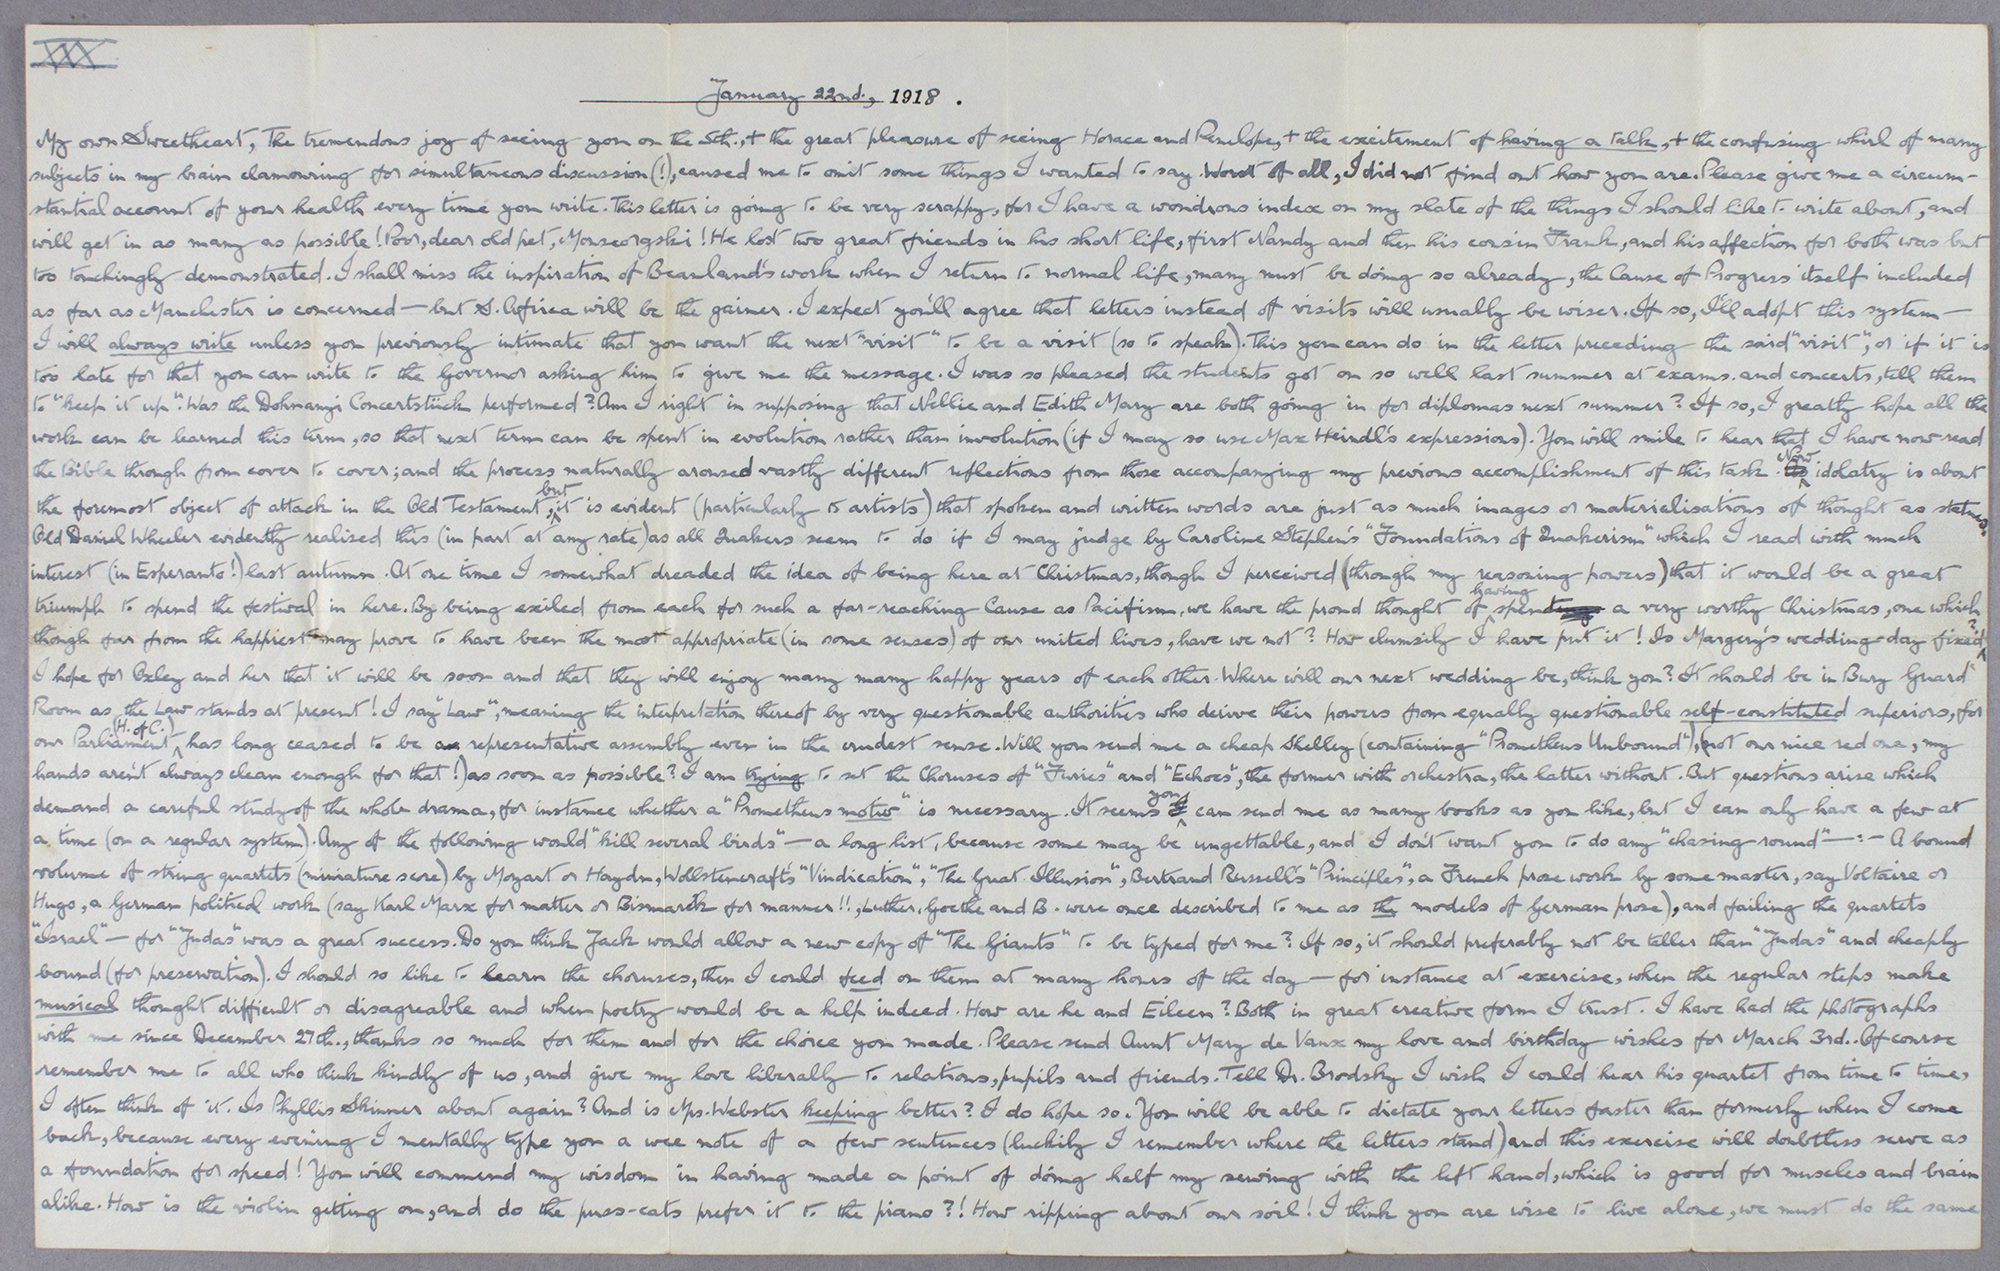 XXX
January 22nd., 1918.
My own Sweetheart, The tremendous joy of seeing you on the 5th., + the great pleasure of seeing Horace and Penelope, + the excitement of having a talk, + the confusing whirl of many
subjects in my brain clamouring for simultaneous discussion (!), caused me to omit some things I wanted to say. Worst of all, I did not find out how you are. Please give me a circum-
stantial account of your health every time you write. This letter is going to be very scrappy, for I have a wondrous index on my slate of the things I should like to write about, and
will get in as many as possible! Poor, dear old pet, Mouseorgski! He lost two great friends in his short life, first Nandy and then his cousin Frank, and his affection for both was but
too touchingly demonstrated. I shall miss the inspiration of Beanland's work when I return to normal life, many must be doing so already, the Cause of Progress itself included
as far as Manchester is concerned — but S. Africa will be the gainer. I expect you'll agree that letters instead of visits will usually be wiser. If so, I'll adopt this system —
I will always write unless you previously intimate that you want the next "visit" to be a visit (so to speak). This you can do in the letter preceding the said "visit", or if it is
too late for that you can write to the Governor asking him to give me the message. I was so pleased the students got on so well last summer at exams. and concerts, tell them
to "keep it up". Was the Dohnanyi Concertstück performed? Am I right in supposing that Nellie and Edith Mary are both going in for diplomas next summer? If so, I greatly hope all the
work can be learned this term, so that next term can be spent in evolution rather than involution (if I may so use Max Heindl's expressions). You will smile to hear that I have now read
the Bible through from cover to cover; and the process naturally aroused vastly different reflections from those accompanying my previous accomplishment of this task. Now idolatry is about
the foremost object of attack in the Old Testament, but it is evident (particularly to artists) that spoken and written words are just as much images or materialisations of thought as statues.
Old Daniel Wheeler evidently realised this (in part at any rate) as all Quakers seem to do if I may judge by Caroline Stephen's "Foundations of Quakerism" which I read with much
interest (in Esperanto!) last autumn. At one time I somewhat dreaded the idea of being here at Christmas, though I perceived (through my reasoning powers) that it would be a great
triumph to spend the festival in here. By being exiled from each for such a far-reaching Cause as Pacifism, we have the proud thought of having spent a very worthy Christmas, one which
though far from the happiest may prove to have been the most appropriate (in some senses) of our united lives, have we not? How clumsily I have put it! Is Margery's wedding-day fixed?
I hope for Oxley and her that it will be soon and that they will enjoy many many happy years of each other. Where will our next wedding be, think you? It should be in Bury Guard
Room as the Law stands at present! I say "Law", meaning the interpretation thereof by very questionable authorities who derive their powers from equally questionable self-constituted superiors, for
our Parliament (H. of C.) has long ceased to be a representative assembly even in the crudest sense. Will you send me a cheap Shelley (containing "Prometheus Unbound"), (not our nice red one, my
hands aren't always clean enough for that!) as soon as possible? I am trying to set the Choruses of "Furies" and "Echoes", the former with orchestra, the latter without. But questions arise which
demand a careful study of the whole drama, for instance whether a "Prometheus motiv" is necessary. It seems you can send me as many books as you like, but I can only have a few at
a time (on a regular system). Any of the following would "kill several birds" — a long list, because some may be ungettable, and I don't want you to do any "chasing round" — : — A bound
volume of string quartets (miniature score) by Mozart or Haydn, Wollstencraft's "Vindication", "The Great Illusion", Bertrand Russell's "Principles", a French prose work by some master, say Voltaire or
Hugo, a German political work (say Karl Marx for matter or Bismarck for manner!!, Luther, Goethe and B. were once described to me as the models of German prose), and failing the quartets
"Israel" — for "Judas" was a great success. Do you think Jack would allow a new copy of "The Giants" to be typed for me? If so, it should preferably not be taller than "Judas" and cheaply
bound (for preservation). I should so like to learn the choruses, then I could feed on them at many hours of the day — for instance at exercise, when the regular steps make
musical thought difficult or disagreeable and when poetry would be a help indeed. How are he and Eileen? Both in great creative form I trust. I have had the photographs
with me since December 27th., thanks so much for them and for the choice you made. Please send Aunt Mary de Vaux my love and birthday wishes for March 3rd.. Of course
remember me to all who think kindly of us, and give my love liberally to relations, pupils and friends. Tell Dr. Brodsky I wish I could hear his quartet from time to time,
I often think of it. Is Phyllis Skinner about again? And is Mrs. Webster keeping better? I do hope so. You will be able to dictate your letters faster than formerly when I come
back, because every evening I mentally type you a wee note of a few sentences (luckily I remember where the letters stand) and this exercise will doubtless serve as
a foundation for speed! You will commend my wisdom in having made a point of doing half my sewing with the left hand, which is good for muscles and brain
alike. How is the violin getting on, and do the puss-cats prefer it to the piano?! How ripping about our soil! I think you are wise to live alone, we must do the same